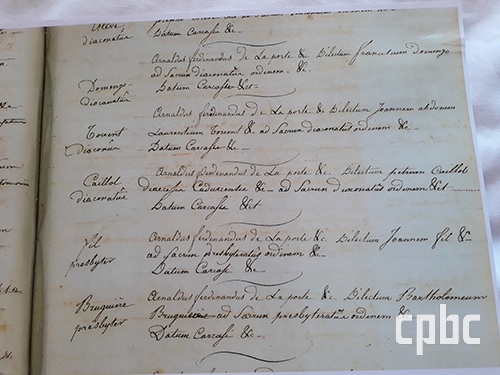 diaconatûs
Datum Carcassæ &c.
Domenge
diaconatûs
Arnaldus ferdinandus de La porte &c Dilectum franciscum Domenge
ad Sacrum diaconatûs ordinem &c.
Datum Carcassæ &ct
Tourent
Diaconûs
Arnaldus ferdinandus de La porte &c Dilectum Joannem abdonem
Laurentium Tourent &c ad Sacrum diaconatûs ordinem &c
Datum Carcassæ &c
Caillol
diaconatûs
Arnaldus ferdinandus de La porte &c. Dilectum petrum Caillol
dioecesis Cadurcensis &c ad Sacrum diaconatûs ordinem &ct
Datum Carcassæ &ct
presbyter
Arnaldus ferdinandus de La porte &c. Dilectum Joannem &c
ad Sacrum presbyteratûs ordinem &c
Datum Carcassæ &c
Bruguière
presbyter
Arnaldus ferdinandus de La porte &c. Dilectum Bartholomeum
Bruguière ad Sacrum presbyteratûs ordinem &c
Datum Carcassæ &c
cpbc